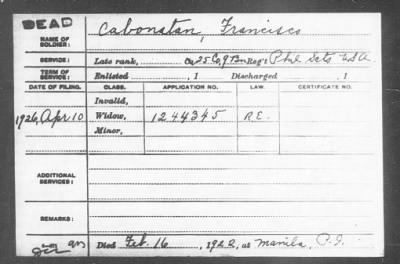 DEAD
NAME OF SOLDIER: Cabonatan, Francisco
SERVICE: Late rank, Co. 25 Co, 9 Bn Reg't Phil Scts USA
TERM OF SERVICE: Enlisted , 1 Discharged , 1
DATE OF FILING. CLASS. APPLICATION NO. LAW. CERTIFICATE NO.
Invalid,
1926, Apr 10 Widow, 1244345 R.E.
Minor,
ADDITIONAL SERVICES:
REMARKS:
Died Feb. 16, 1922, at Manila, P.I.